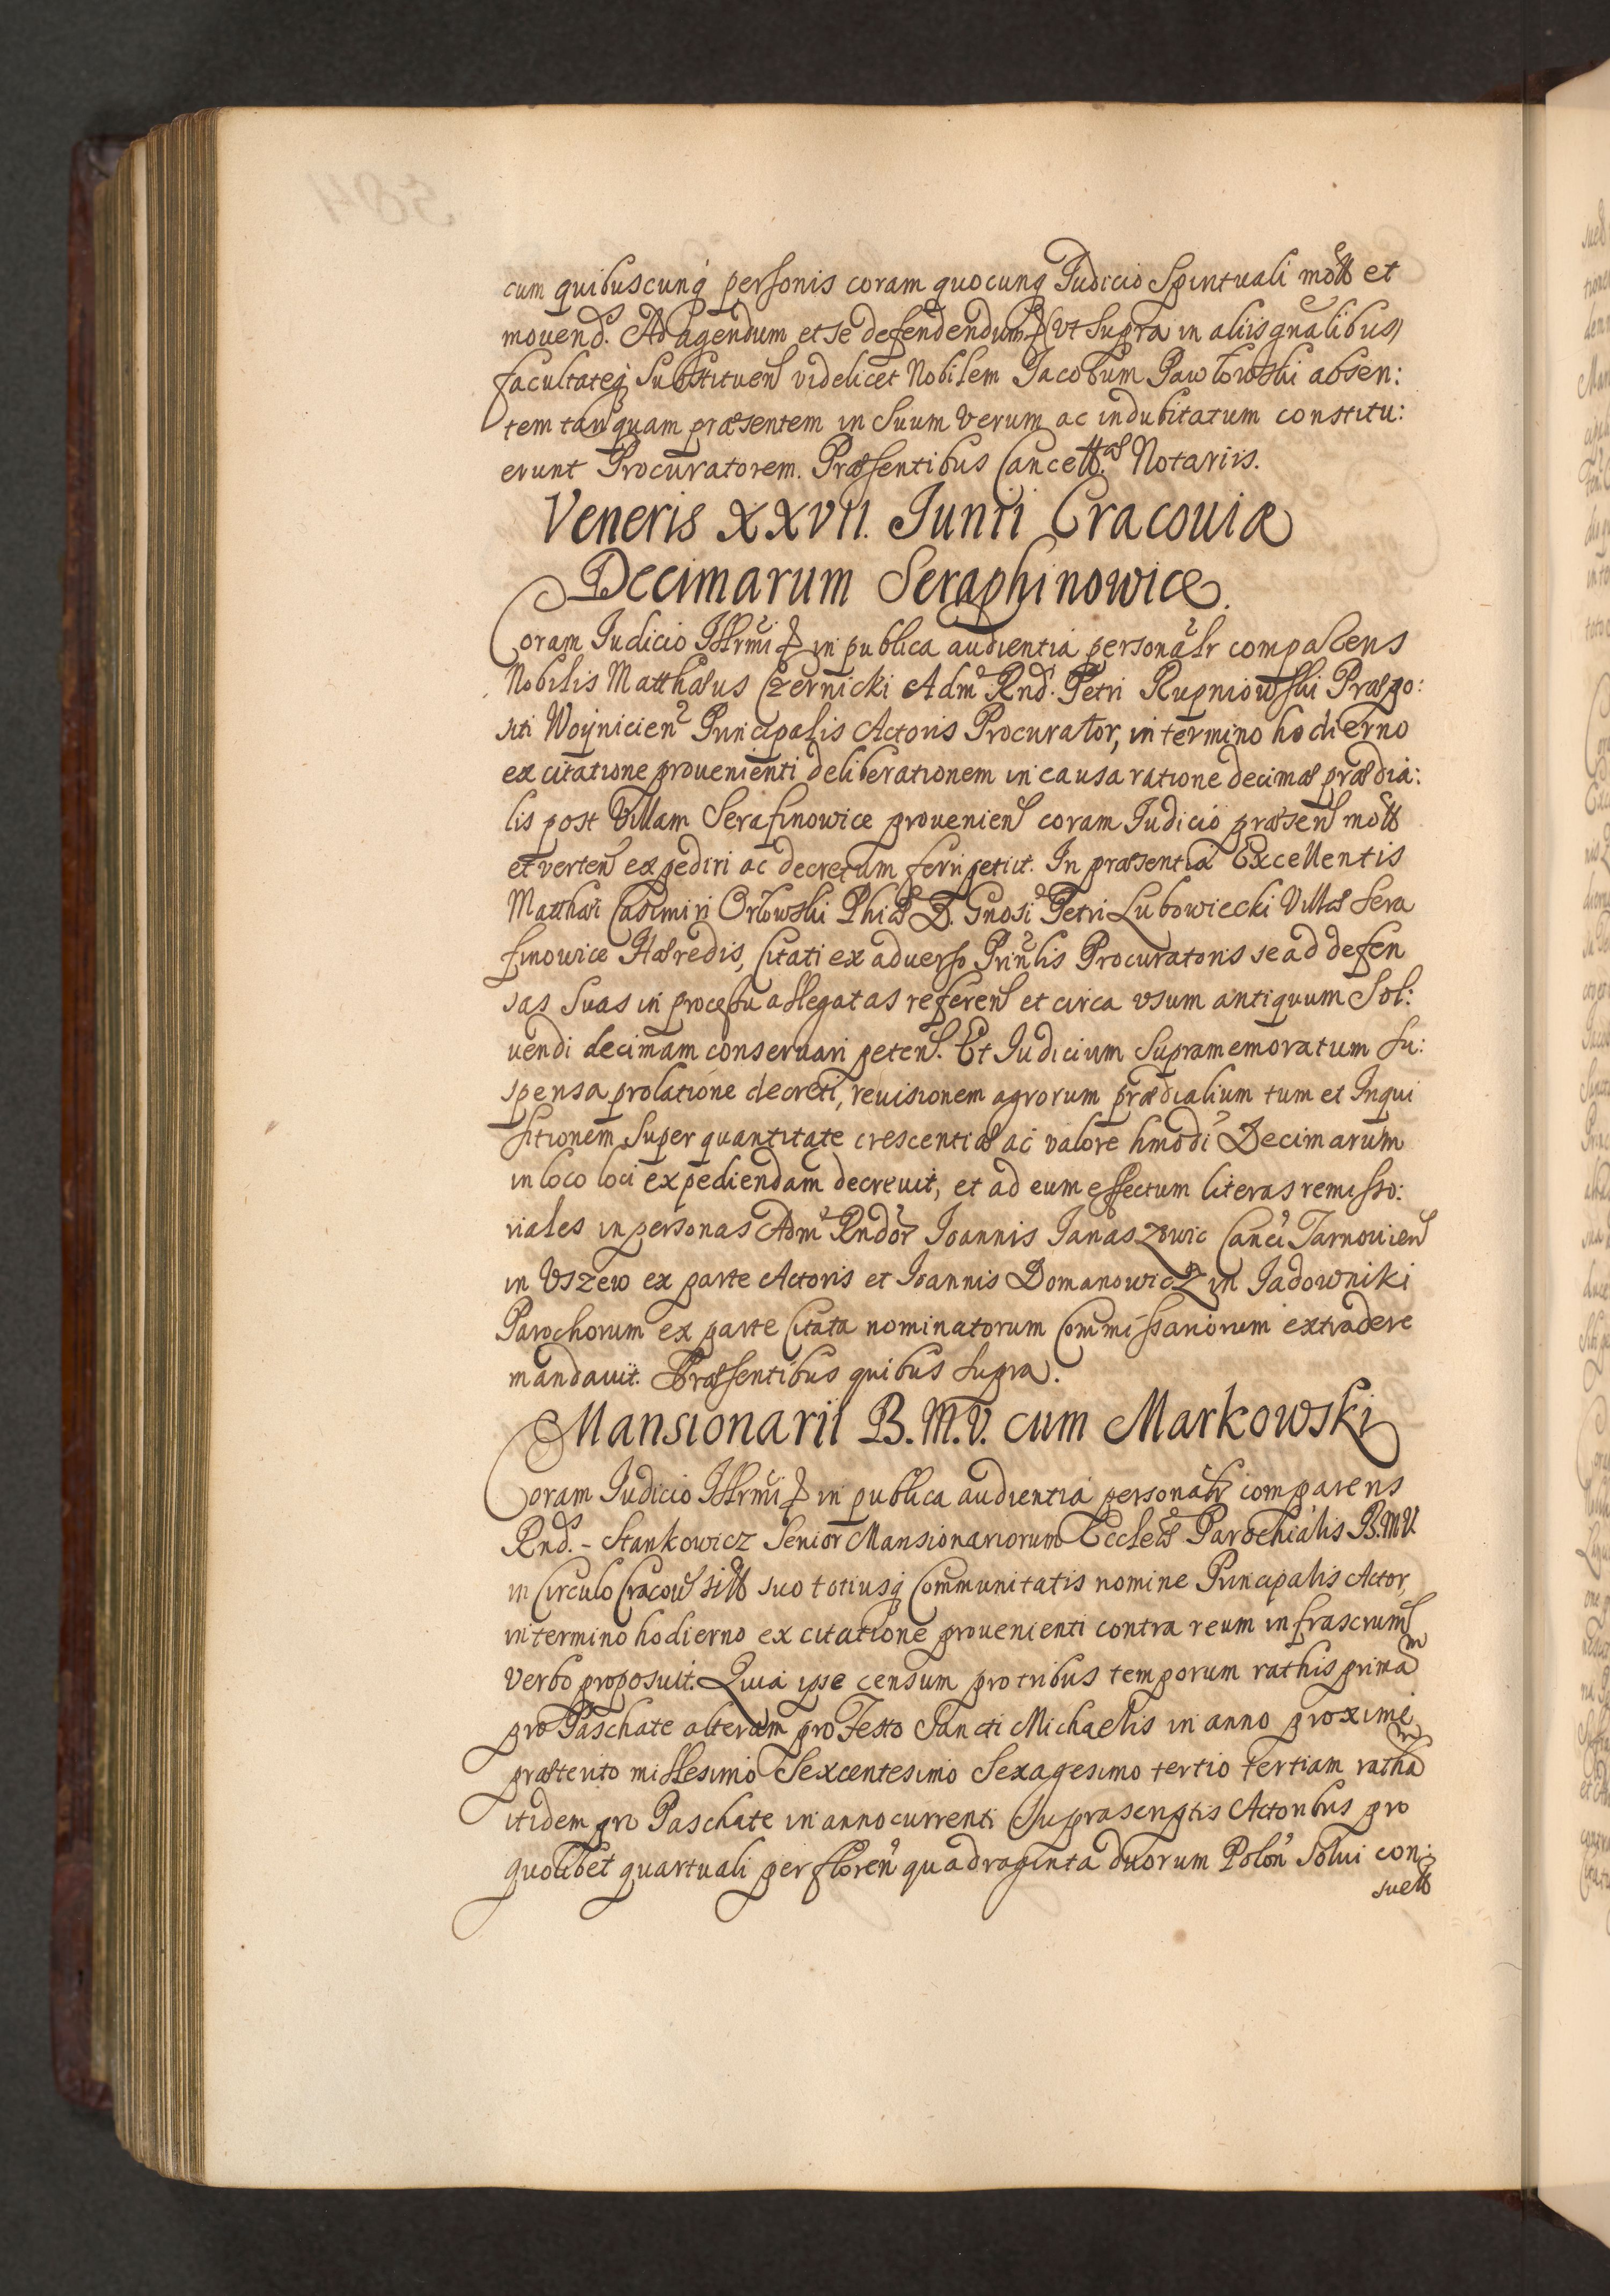 cum quibuscunq́ personis coram quocunq Judicio Spirituali mott et
mouend. Ad agendum et se defendendum (vt supra in aliis gnalibus)
facultateq́ Substituen videlicet Nobilem Jacobum Pawłowski absen:
tem tanquam præsentem in Suum verum ac indubitatum constitu:
erunt Procuratorem. Præsentibus Cancell. Notariis.
Veneris XXVII. Junii Cracouiæ
Decimarum Seraphinowice.
Coram Judicio Illrmi in publica audientia personalr comparens
Nobilis Matthæus Czernicki Adm Rnd. Petri Rupniowski Præpo:
siti Woynicien Principalis Actoris Procurator, in termino hodierno
ex citatione prouenienti deliberationem in causa ratione decimæ prædia:
lis post Villam Serafinowice prouenien coram Judicio præsen mott
et verten expediri ac decretum ferri petiit. In præsentia Excellentis
Matthæi Casimiri Orłowski Phiæ D. Gnosi Petri Lubowiecki Villæ Sera
finowice Hæredis, Citati ex aduerso Prinlis Procuratoris se ad defen
sas Suas in processu allegatas referen et circa vsum antiquum Sol:
uendi decimam conseruari peten. Et Judicium Supramemoratum Su:
spensa prolatione decreti, reuisionem agrorum prædialium tum et Inqui
sitionem Super quantitate crescentiæ ac valore hmodi Decimarum
in loco loci expediendam decreuit, et ad eum effectum literas remisso:
riales in personas Adm Rndor Joannis Janaszowic Canci Tarnouien
in Vszew ex parte Actoris et Joannis Domanowicz in Jadowniki
Parochorum ex parte Citata nominatorum Commissariorum extradere
mandauit. Præsentibus quibus Supra.
Mansionarii B. M. V. cum Markowski
Coram Judicio Illrmi in publica audientia personalr comparens
Rnd. - Stankowicz Senior Mansionariorum Eccleæ Parochialis B. M V.
in Circulo Cracow sitt suo totiusq́ Communitatis nomine Principalis Actor
in termino hodierno ex citatione prouenienti contra reum infrascrum
verbo proposuit. Quia ipse censum pro tribus temporum rathis primam
pro Paschate alteram pro Festo Sancti Michaelis in anno proxime
præterito millesimo Sexcentesimo Sexagesimo tertio tertiam ratham
itidem pro Paschate in anno currenti Suprascriptis Actoribus pro
quolibet quartuali per floren quadraginta duorum Polon Solui con:
suett